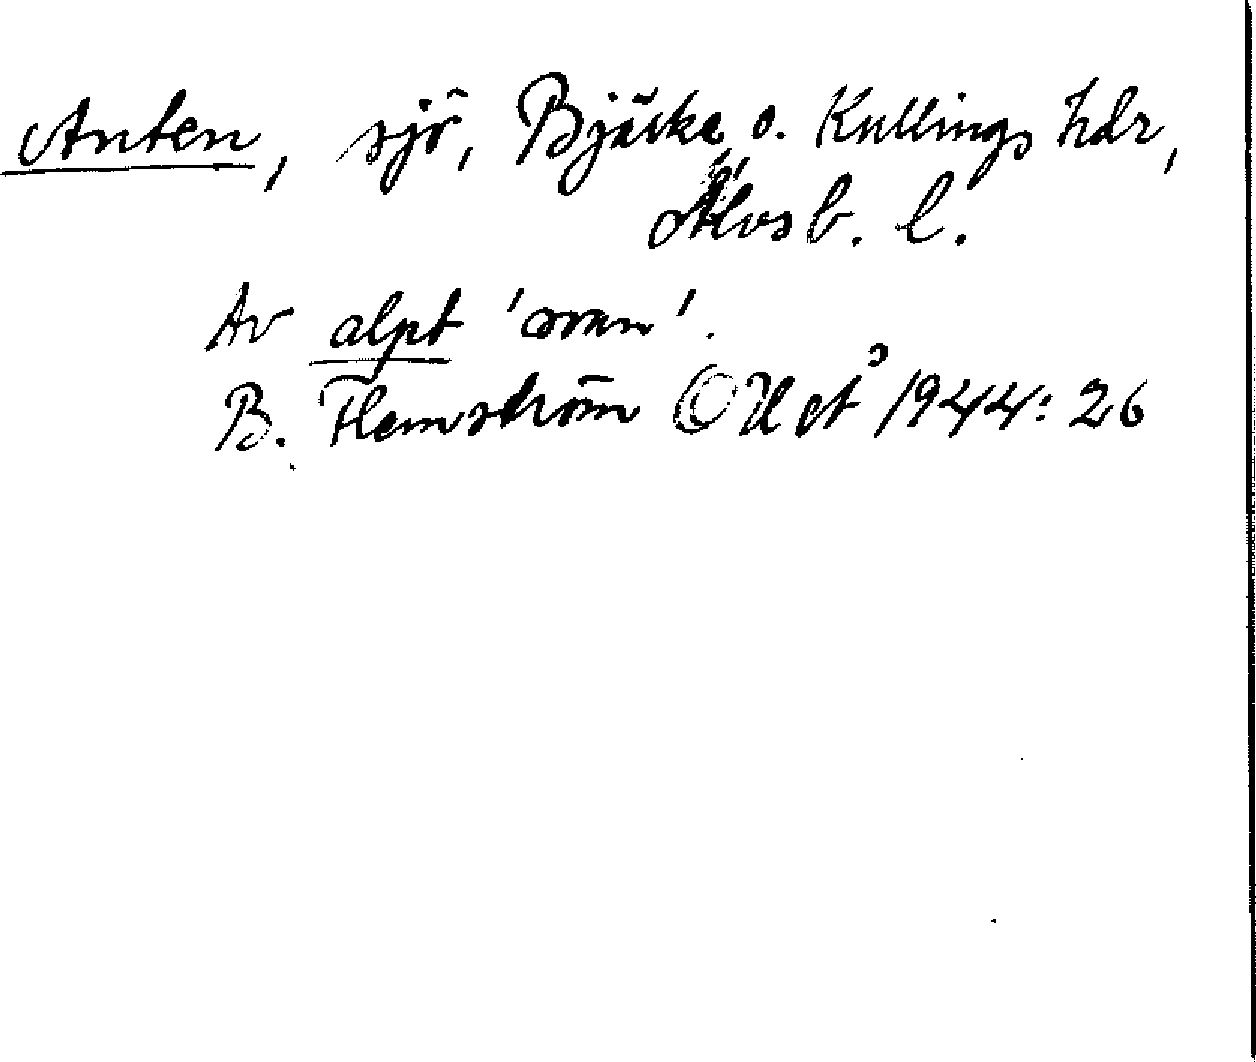 Anten, sjö, Bjärke o. Kullings hdr,
Älvsb. l.
Av alpt 'svan'.
B. Flemström OUÅ 1944: 26